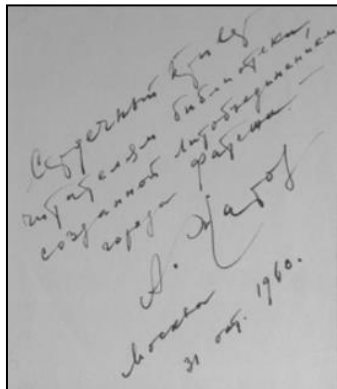 Сердечный привет
читателям библиотеки,
созданной литобъединением
города Фатежа. —
А. Жаров
Москва
31 окт. 1960.